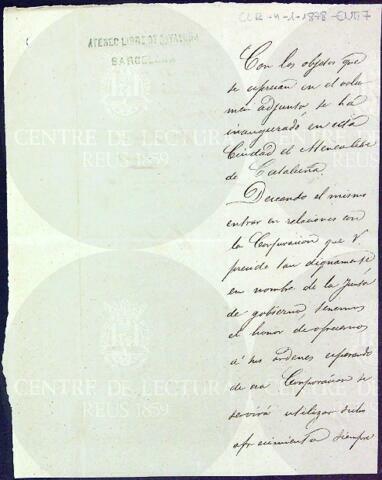 CLR-4-1-1878-
ATENEO LIBRE DE CATALUÑA
BARCELONA
Con los objetos que
se espresan en el volu
men adjunto se há
inaugurado en esta
Ciudad el Ateneo libre
de Cataluña.
Deseando el mismo
entrar en relaciones con
la Corporacion que V.
preside tan dignamente
en nombre de la Junta
de gobierno, tenemos
el honor de ofrecernos
á sus órdenes esperando
de esa Corporacion se
servirá utilizar dicho
ofrecimiento siempre
CENTRE DE LECTURA
REUS 1859
CENTRE DE LECTURA
REUS 1859